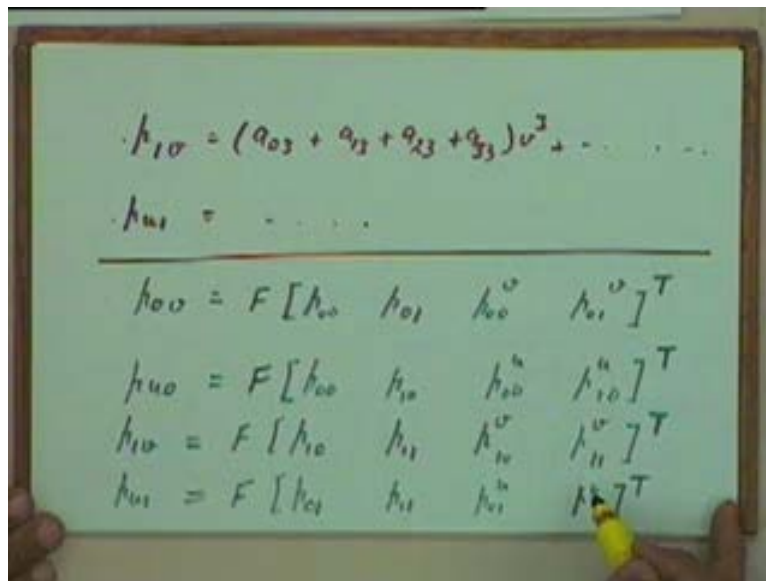 p₁ᵥ = (a₀₃ + a₁₃ + a₂₃ + a₃₃)v³ + . . . . .
pᵤ₁ = . . . .
p₀ᵥ = F [p₀₀ p₀₁ p₀₀ᵛ p₀₁ᵛ]ᵀ
pᵤ₀ = F [p₀₀ p₁₀ p₀₀ᵘ p₁₀ᵘ]ᵀ
p₁ᵥ = F [p₁₀ p₁₁ p₁₀ᵛ p₁₁ᵛ]ᵀ
pᵤ₁ = F [p₀₁ p₁₁ p₀₁ᵘ ]ᵀ